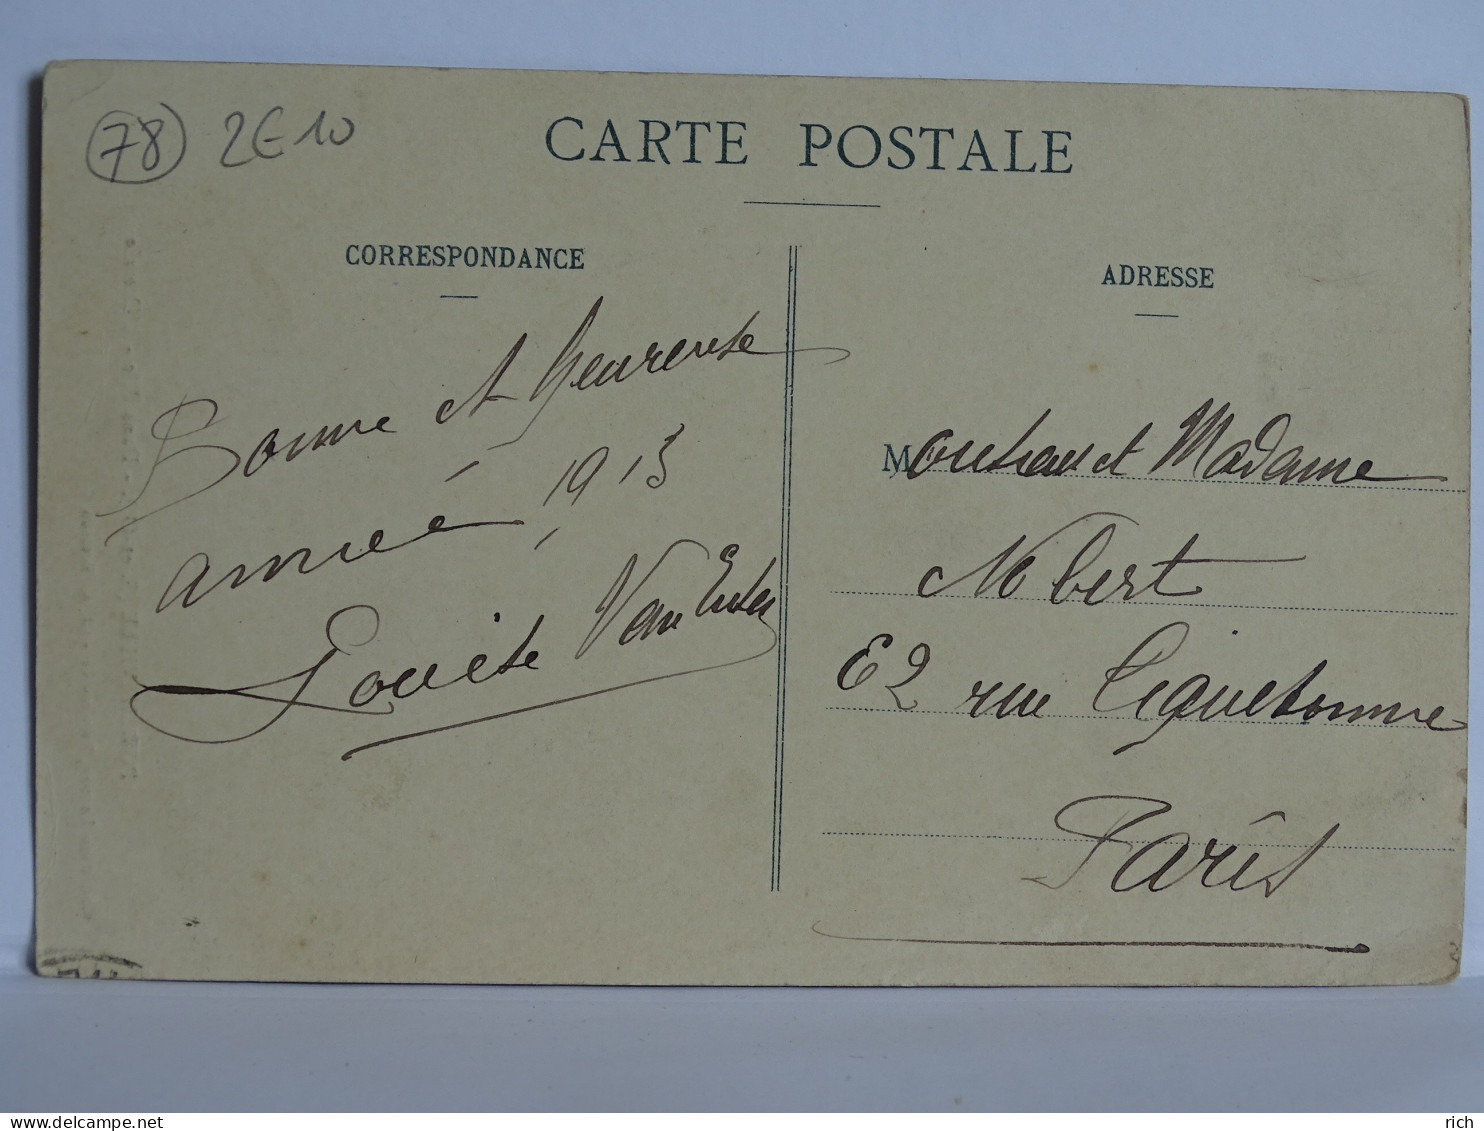 78 2€10
CARTE POSTALE
CORRESPONDANCE
Bonne et heureuse
année 1913
Louise Van
ADRESSE
Monsieur et Madame
Nobert
62 rue Tiquetonne
Paris
www.delcampe.net
rich